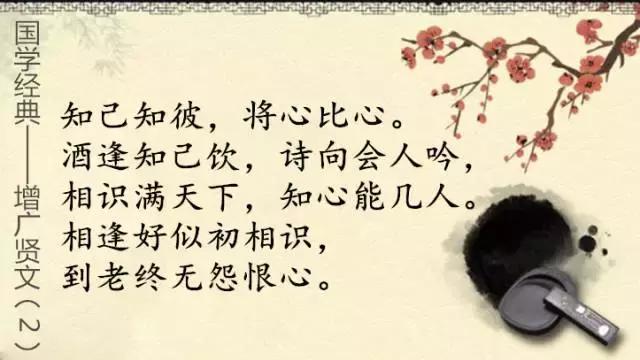 国学经典——增广贤文（2）
知己知彼，将心比心。
酒逢知己饮，诗向会人吟，
相识满天下，知心能几人。
相逢好似初相识，
到老终无怨恨心。